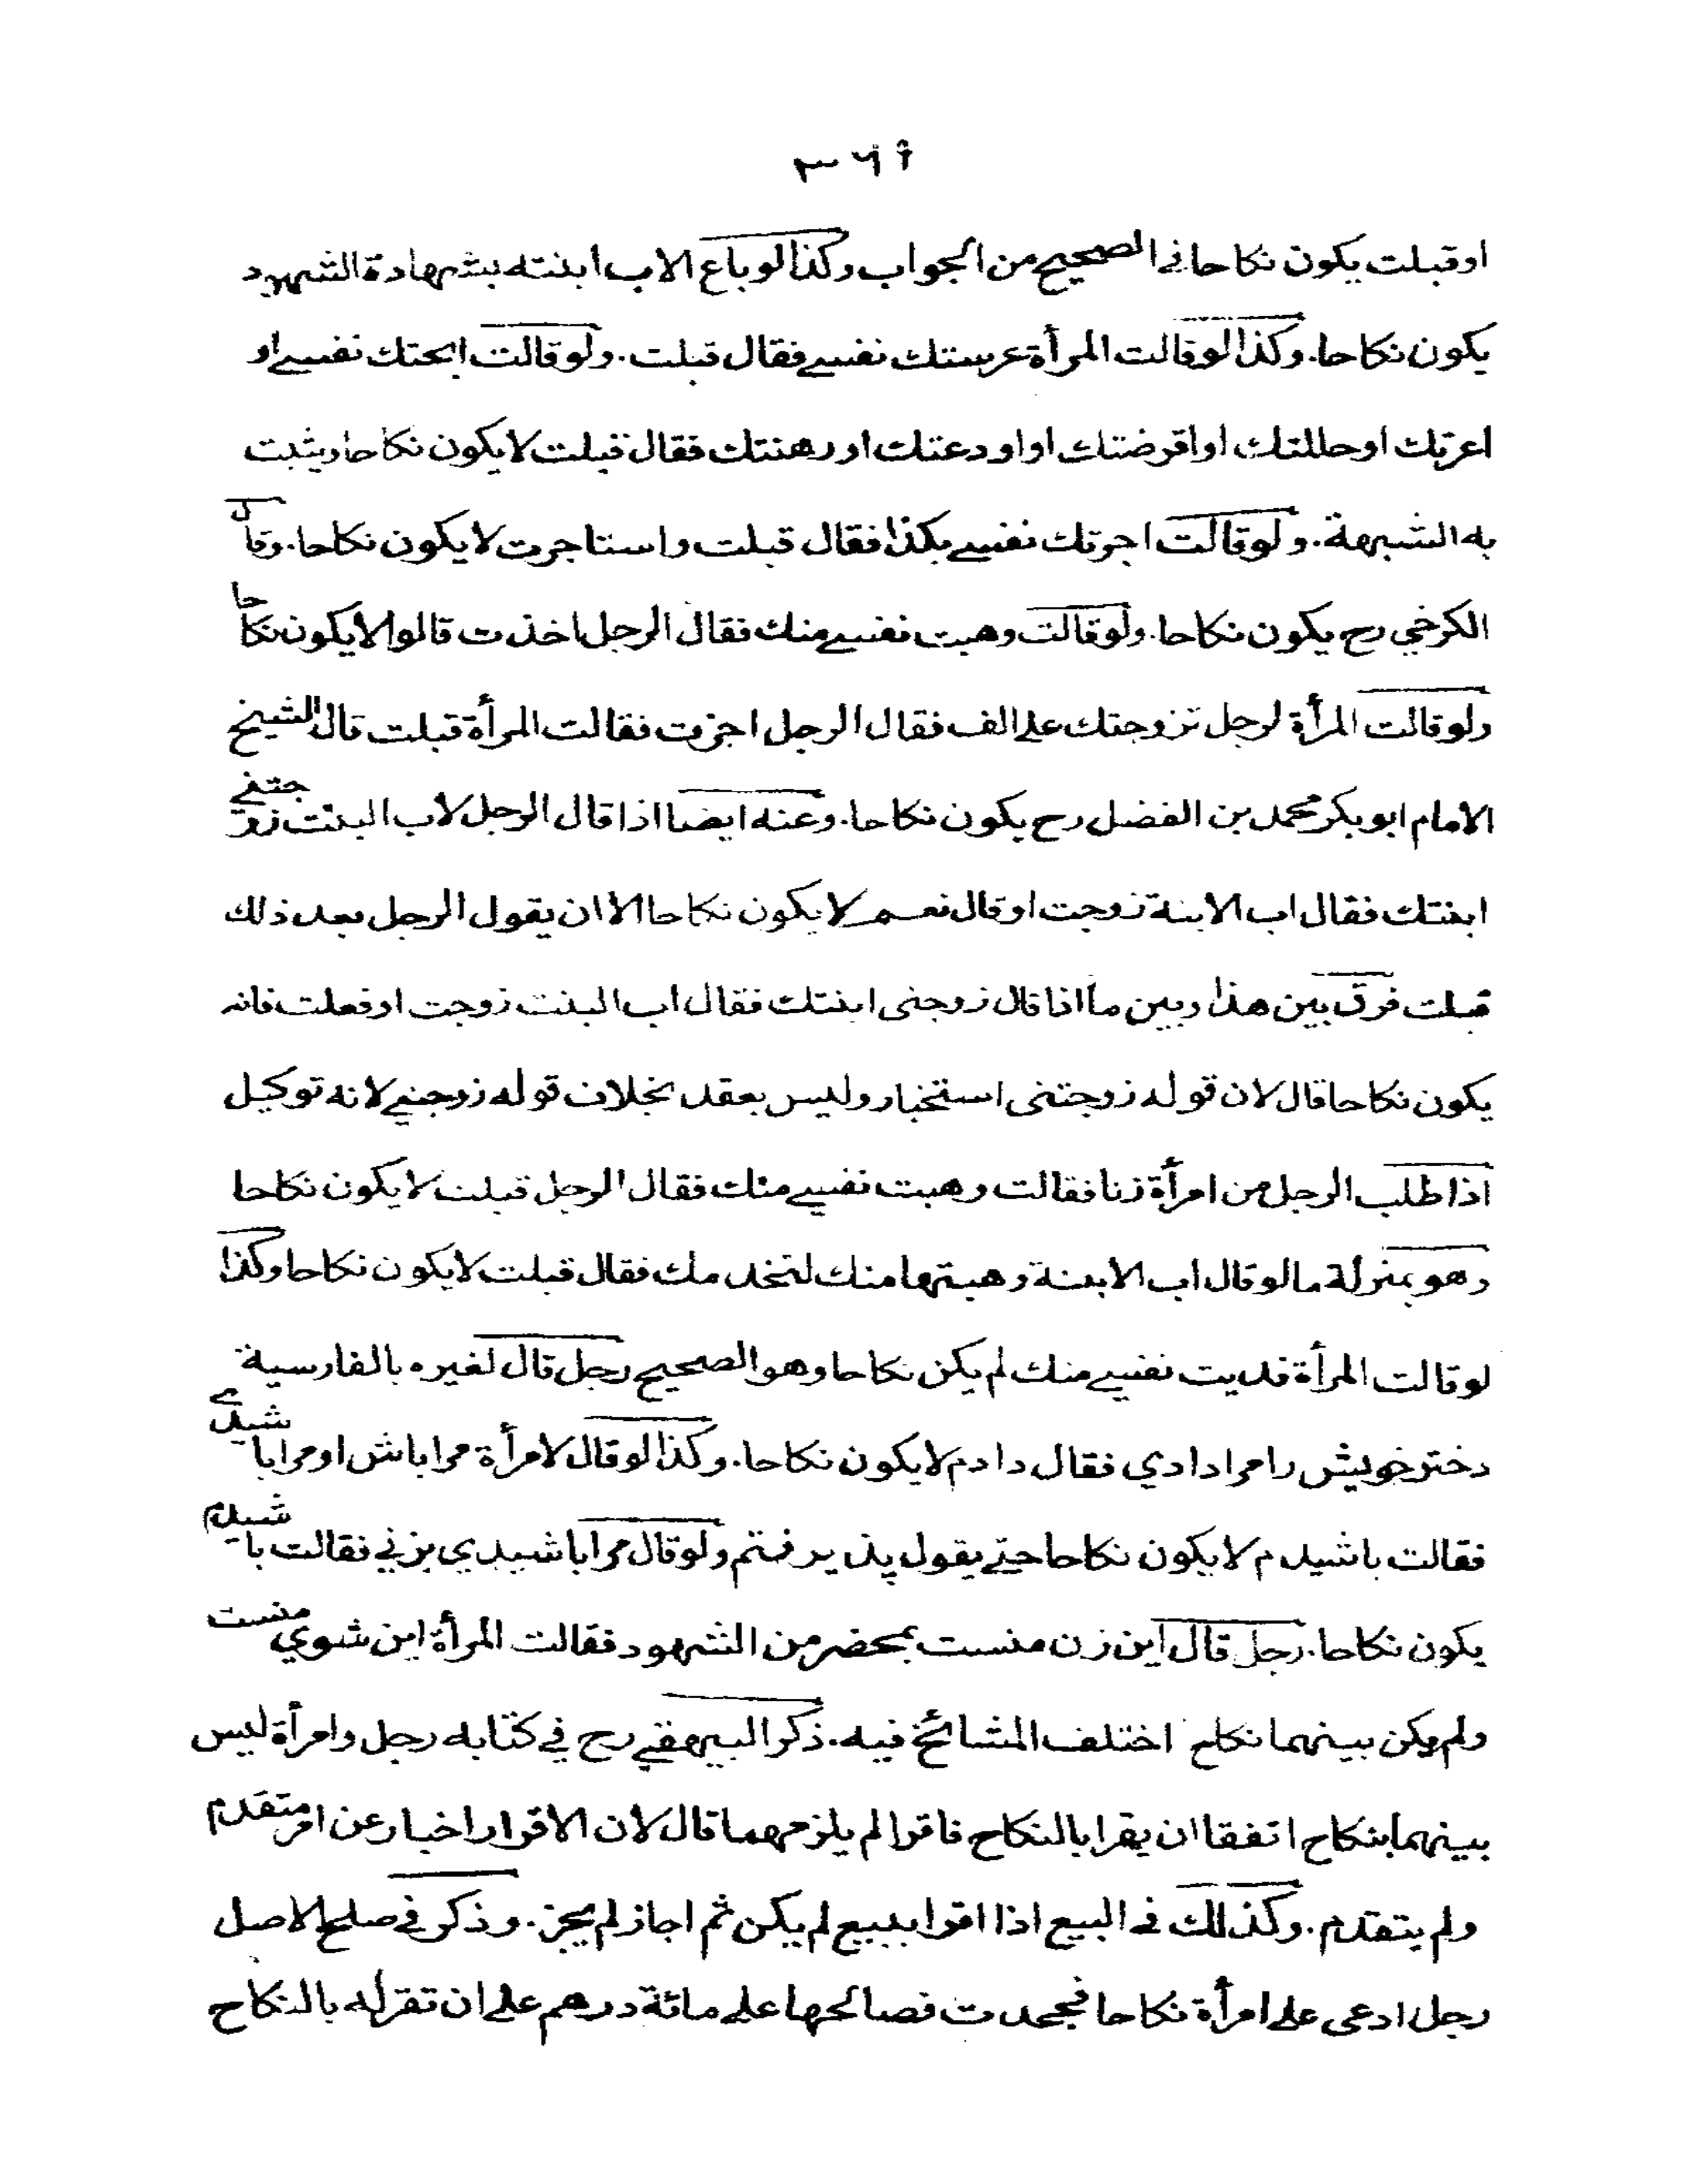 اوقبلت يكون نكاحا في الصحيح من الجواب وكذا لو باع الاب ابنته بشهادة الشهود
يكون نكاحا. وكذا لو قالت المرأة عرستك نفسي فقال قبلت. ولو قالت ابحتك نفسي او
اعرتك او حللتك او اقرضتك او اودعتك او رهنتك فقال قبلت لا يكون نكاحا ويثبت
به الشبهة. ولو قالت اجرتك نفسي بكذا فقال قبلت واستاجرت لا يكون نكاحا. وقال
الكرخي رح يكون نكاحا. ولو قالت وهبت نفسي منك فقال الرجل اخذت قالوا لا يكون نكاحا
ولو قالت المرأة لرجل تزوجتك على الف فقال الرجل اجزت فقالت المرأة قبلت قال الشيخ
الامام ابو بكر محمد بن الفضل رح يكون نكاحا. وعنه ايضا اذا قال الرجل لاب البنت زوجتني
ابنتك فقال اب الابنة زوجت او قال نعم لا يكون نكاحا الا ان يقول الرجل بعد ذلك
قبلت فرق بين هذا وبين ما اذا قال زوجني ابنتك فقال اب البنت زوجت او فعلت فانه
يكون نكاحا قال لان قوله زوجتني استخبار وليس بعقد بخلاف قوله زوجني لانه توكيل
اذا طلب الرجل من امرأة زنا فقالت وهبت نفسي منك فقال الرجل قبلت لا يكون نكاحا
وهو بمنزلة ما لو قال اب الابنة وهبتها منك لتخدمك فقال قبلت لا يكون نكاحا وكذا
لو قالت المرأة فديت نفسي منك لم يكن نكاحا وهو الصحيح رجل قال لغيره بالفارسية
دختر خويش را مرا دادي فقال دادم لا يكون نكاحا. وكذا لو قال لامرأة مرا باش او مرا باشيدي
فقالت باشيدم لا يكون نكاحا حتى يقول پذيرفتم ولو قال مرا باشيدي بزني فقالت باشيدم
يكون نكاحا. رجل قال اين زن منست بمحضر من الشهود فقالت المرأة اين شوي منست
ولم يكن بينهما نكاح اختلف المشائخ فيه. ذكر البيهقي رح في كتابه رجل وامرأة ليس
بينهما بنكاح اتفقا ان يقرا بالنكاح فاقرا لم يلزمهما قال لان الاقرار اخبار عن امر متقدم
ولم يتقدم. وكذلك في البيع اذا اقرا ببيع لم يكن ثم اجاز لم يجز. وذكر في صلح الاصل
رجل ادعى على امرأة نكاحا فجحدت فصالحها على مائة درهم على ان تقر له بالنكاح